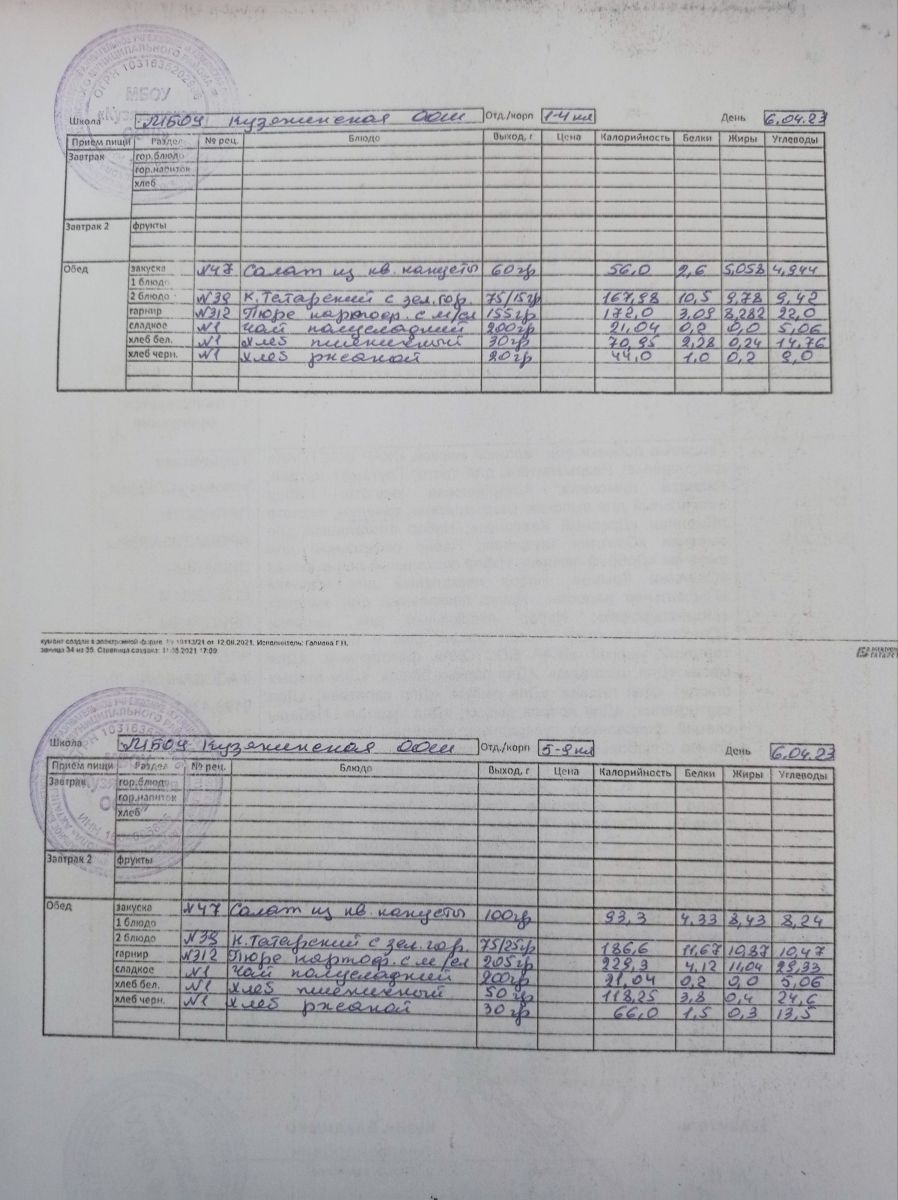 МБОУ
Школа МБОУ Кузякинская ООШ Отд./корп 1-4 кл День 6.04.23
Прием пищи Раздел № рец. Блюдо Выход, г Цена Калорийность Белки Жиры Углеводы
Завтрак гор.блюдо
гор.напиток
хлеб
Завтрак 2 фрукты
Обед закуска №47 Салат из кв. капусты 60гр 56,0 2,6 5,058 4,944
1 блюдо
2 блюдо №39 К.Татарский с зел.гор. 75/15гр 167,98 10,5 9,78 9,42
гарнир №312 Пюре картоф. с м/сл 155гр 172,0 3,09 8,282 22,0
сладкое №1 Чай полусладкий 200гр 21,04 0,2 0,0 5,06
хлеб бел. №1 Хлеб пшеничный 30гр 70,95 2,28 0,24 14,76
хлеб черн. №1 Хлеб ржаной 20гр 44,0 1,0 0,2 9,0
кумент создан в электронной форме. № 10113/21 от 12.08.2021. Исполнитель: Галиева Г.Н.
раница 34 из 35. Страница создана: 11.08.2021 17:09
Школа МБОУ Кузякинская ООШ Отд./корп 5-9 кл День 6.04.23
Прием пищи Раздел № рец. Блюдо Выход, г Цена Калорийность Белки Жиры Углеводы
Завтрак гор.блюдо
гор.напиток
хлеб
Завтрак 2 фрукты
Обед закуска №47 Салат из кв. капусты 100гр 93,3 4,33 8,43 8,24
1 блюдо
2 блюдо №39 К.Татарский с зел.гор. 75/25гр 186,6 11,67 10,87 10,47
гарнир №312 Пюре картоф. с м/сл 205гр 229,3 4,12 11,04 29,33
сладкое №1 Чай полусладкий 200гр 21,04 0,2 0,0 5,06
хлеб бел. №1 Хлеб пшеничный 50гр 118,25 3,8 0,4 24,6
хлеб черн. №1 Хлеб ржаной 30гр 66,0 1,5 0,3 13,5